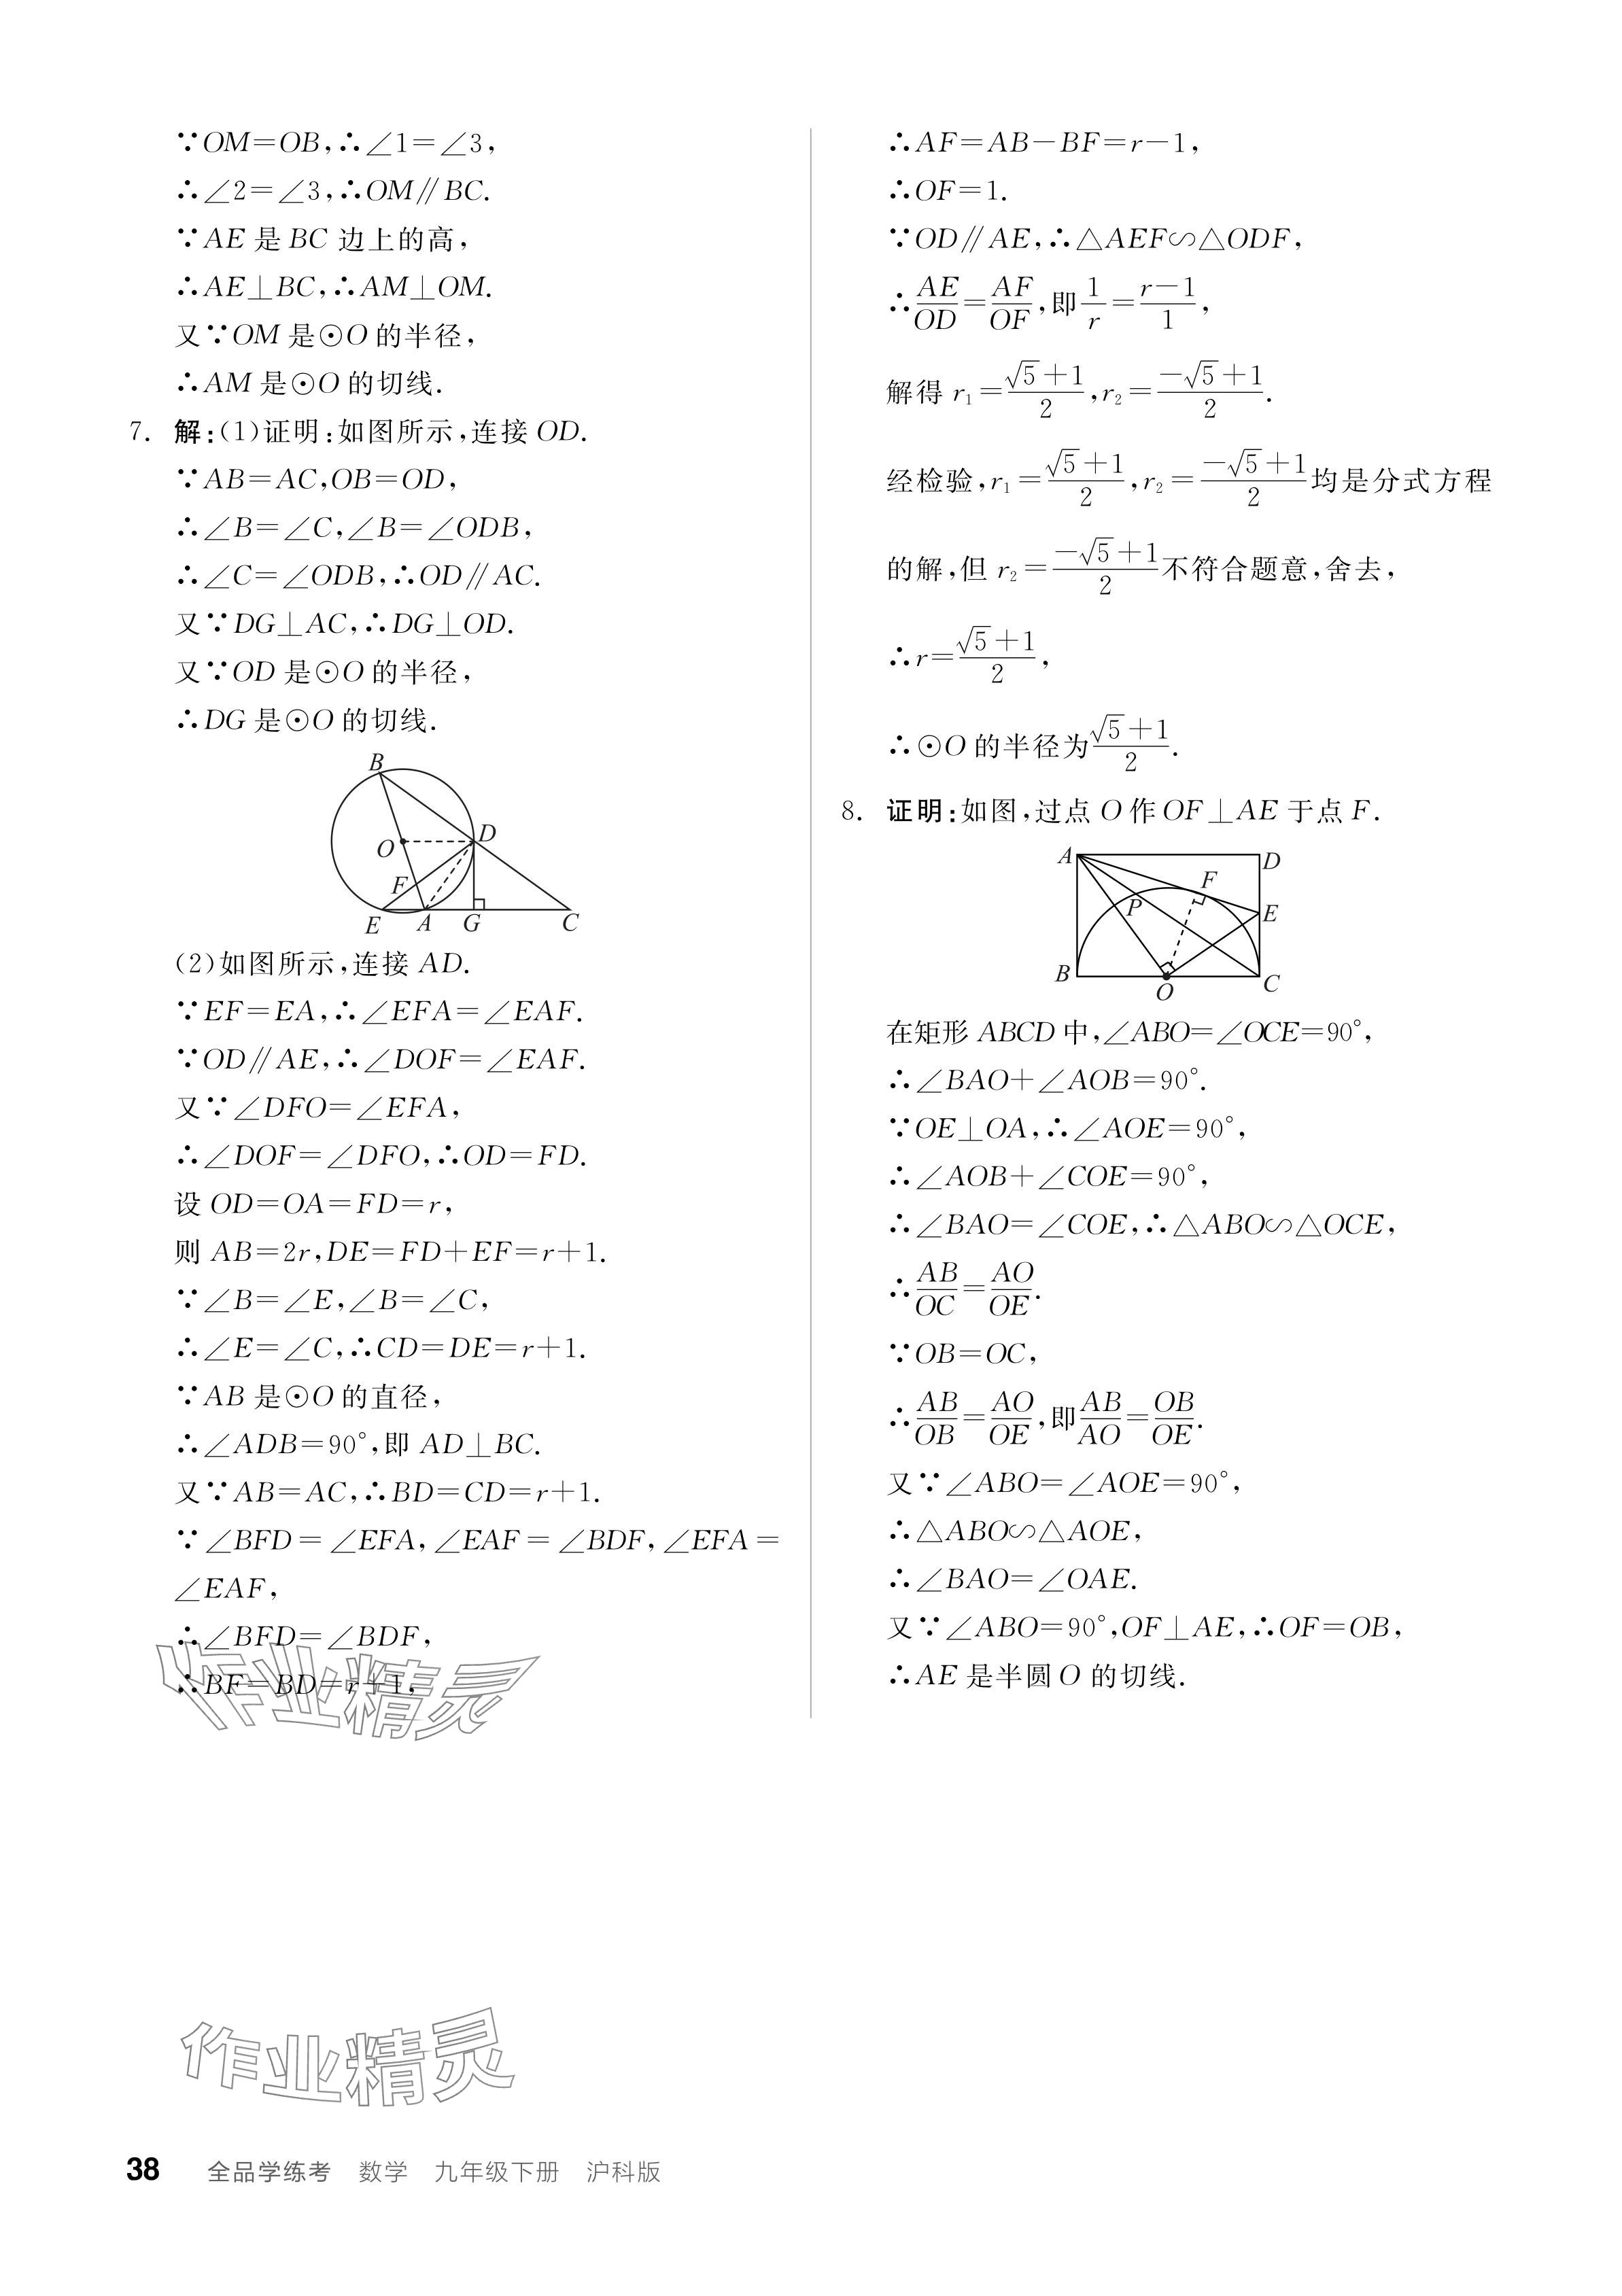 ∵OM=OB,∴∠1=∠3,
∴∠2=∠3,∴OM∥BC.
∵AE 是 BC 边上的高,
∴AE⊥BC,∴AM⊥OM.
又∵OM 是⊙O 的半径,
∴AM 是⊙O 的切线.
7. 解:(1)证明:如图所示,连接 OD.
∵AB=AC,OB=OD,
∴∠B=∠C,∠B=∠ODB,
∴∠C=∠ODB,∴OD∥AC.
又∵DG⊥AC,∴DG⊥OD.
又∵OD 是⊙O 的半径,
∴DG 是⊙O 的切线.
B
O
D
F
E A G C
(2)如图所示,连接 AD.
∵EF=EA,∴∠EFA=∠EAF.
∵OD∥AE,∴∠DOF=∠EAF.
又∵∠DFO=∠EFA,
∴∠DOF=∠DFO,∴OD=FD.
设 OD=OA=FD=r,
则 AB=2r,DE=FD+EF=r+1.
∵∠B=∠E,∠B=∠C,
∴∠E=∠C,∴CD=DE=r+1.
∵AB 是⊙O 的直径,
∴∠ADB=90°,即 AD⊥BC.
又∵AB=AC,∴BD=CD=r+1.
∵∠BFD=∠EFA,∠EAF=∠BDF,∠EFA=
∠EAF,
∴∠BFD=∠BDF,
∴BF=BD=r+1,
作业精灵
∴AF=AB-BF=r-1,
∴OF=1.
∵OD∥AE,∴△AEF∽△ODF,
∴AE/OD=AF/OF,即1/r=(r-1)/1,
解得 r₁=(√5+1)/2,r₂=(-√5+1)/2.
经检验,r₁=(√5+1)/2,r₂=(-√5+1)/2均是分式方程
的解,但 r₂=(-√5+1)/2不符合题意,舍去,
∴r=(√5+1)/2,
∴⊙O 的半径为(√5+1)/2.
8. 证明:如图,过点 O 作 OF⊥AE 于点 F.
A D
F
P E
B O C
在矩形 ABCD 中,∠ABO=∠OCE=90°,
∴∠BAO+∠AOB=90°.
∵OE⊥OA,∴∠AOE=90°,
∴∠AOB+∠COE=90°,
∴∠BAO=∠COE,∴△ABO∽△OCE,
∴AB/OC=AO/OE.
∵OB=OC,
∴AB/OB=AO/OE,即AB/AO=OB/OE.
又∵∠ABO=∠AOE=90°,
∴△ABO∽△AOE,
∴∠BAO=∠OAE.
又∵∠ABO=90°,OF⊥AE,∴OF=OB,
∴AE 是半圆 O 的切线.
作业精灵
38 全品学练考 数学 九年级下册 沪科版